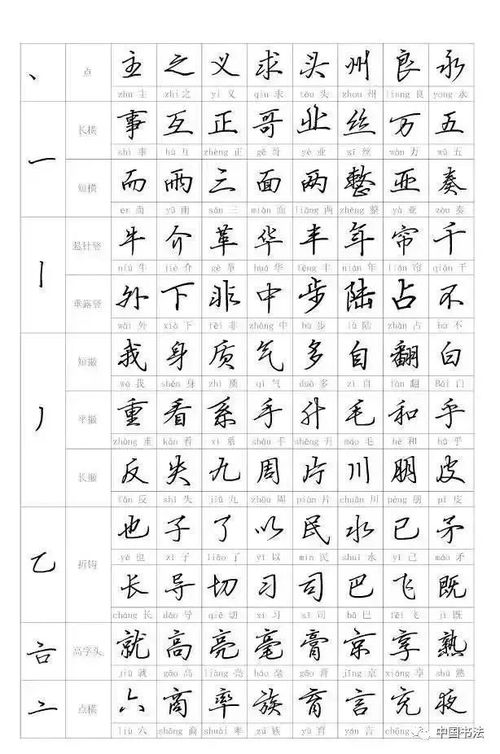 、 点 主 之 义 求 头 州 良 永
zhǔ 主 zhī 之 yì 义 qiú 求 tóu 头 zhōu 州 liáng 良 yǒng 永
一 长横 事 互 正 哥 业 丝 万 五
shì 事 hù 互 zhèng 正 gē 哥 yè 业 sī 丝 wàn 万 wǔ 五
短横 而 雨 三 面 两 整 亚 奏
ér 而 yǔ 雨 sān 三 miàn 面 liǎng 两 zhěng 整 yà 亚 zòu 奏
丨 悬针竖 牛 介 革 华 丰 年 帘 千
niú 牛 jiè 介 gé 革 huá 华 fēng 丰 nián 年 lián 帘 qiān 千
垂露竖 外 下 非 中 步 陆 占 不
wài 外 xià 下 fēi 非 zhōng 中 bù 步 lù 陆 zhàn 占 bù 不
丿 短撇 我 身 质 气 多 自 翻 白
wǒ 我 shēn 身 zhì 质 qì 气 duō 多 zì 自 fān 翻 Bái 白
平撇 重 看 系 手 升 毛 和 乎
zhòng 重 kàn 看 xì 系 shǒu 手 shēng 升 máo 毛 hé 和 hū 乎
长撇 反 失 九 周 片 川 朋 皮
fǎn 反 shī 失 jiǔ 九 zhōu 周 piàn 片 chuān 川 péng 朋 pí 皮
乙 折钩 也 子 了 以 民 水 已 矛
yě 也 zǐ 子 liǎo 了 yǐ 以 mín 民 shuǐ 水 yǐ 已 máo 矛
长 导 切 习 司 巴 飞 既
cháng 长 dǎo 导 qiē 切 xí 习 sī 司 bā 巴 fēi 飞 jì 既
高字头 就 高 亮 毫 膏 京 享 熟
jiù 就 gāo 高 liàng 亮 háo 毫 gāo 膏 jīng 京 xiǎng 享 shú 熟
亠 点横 六 商 率 族 育 言 充 夜
liù 六 shāng 商 zú 族 yù 育 yán 言 chōng 充
中国书法